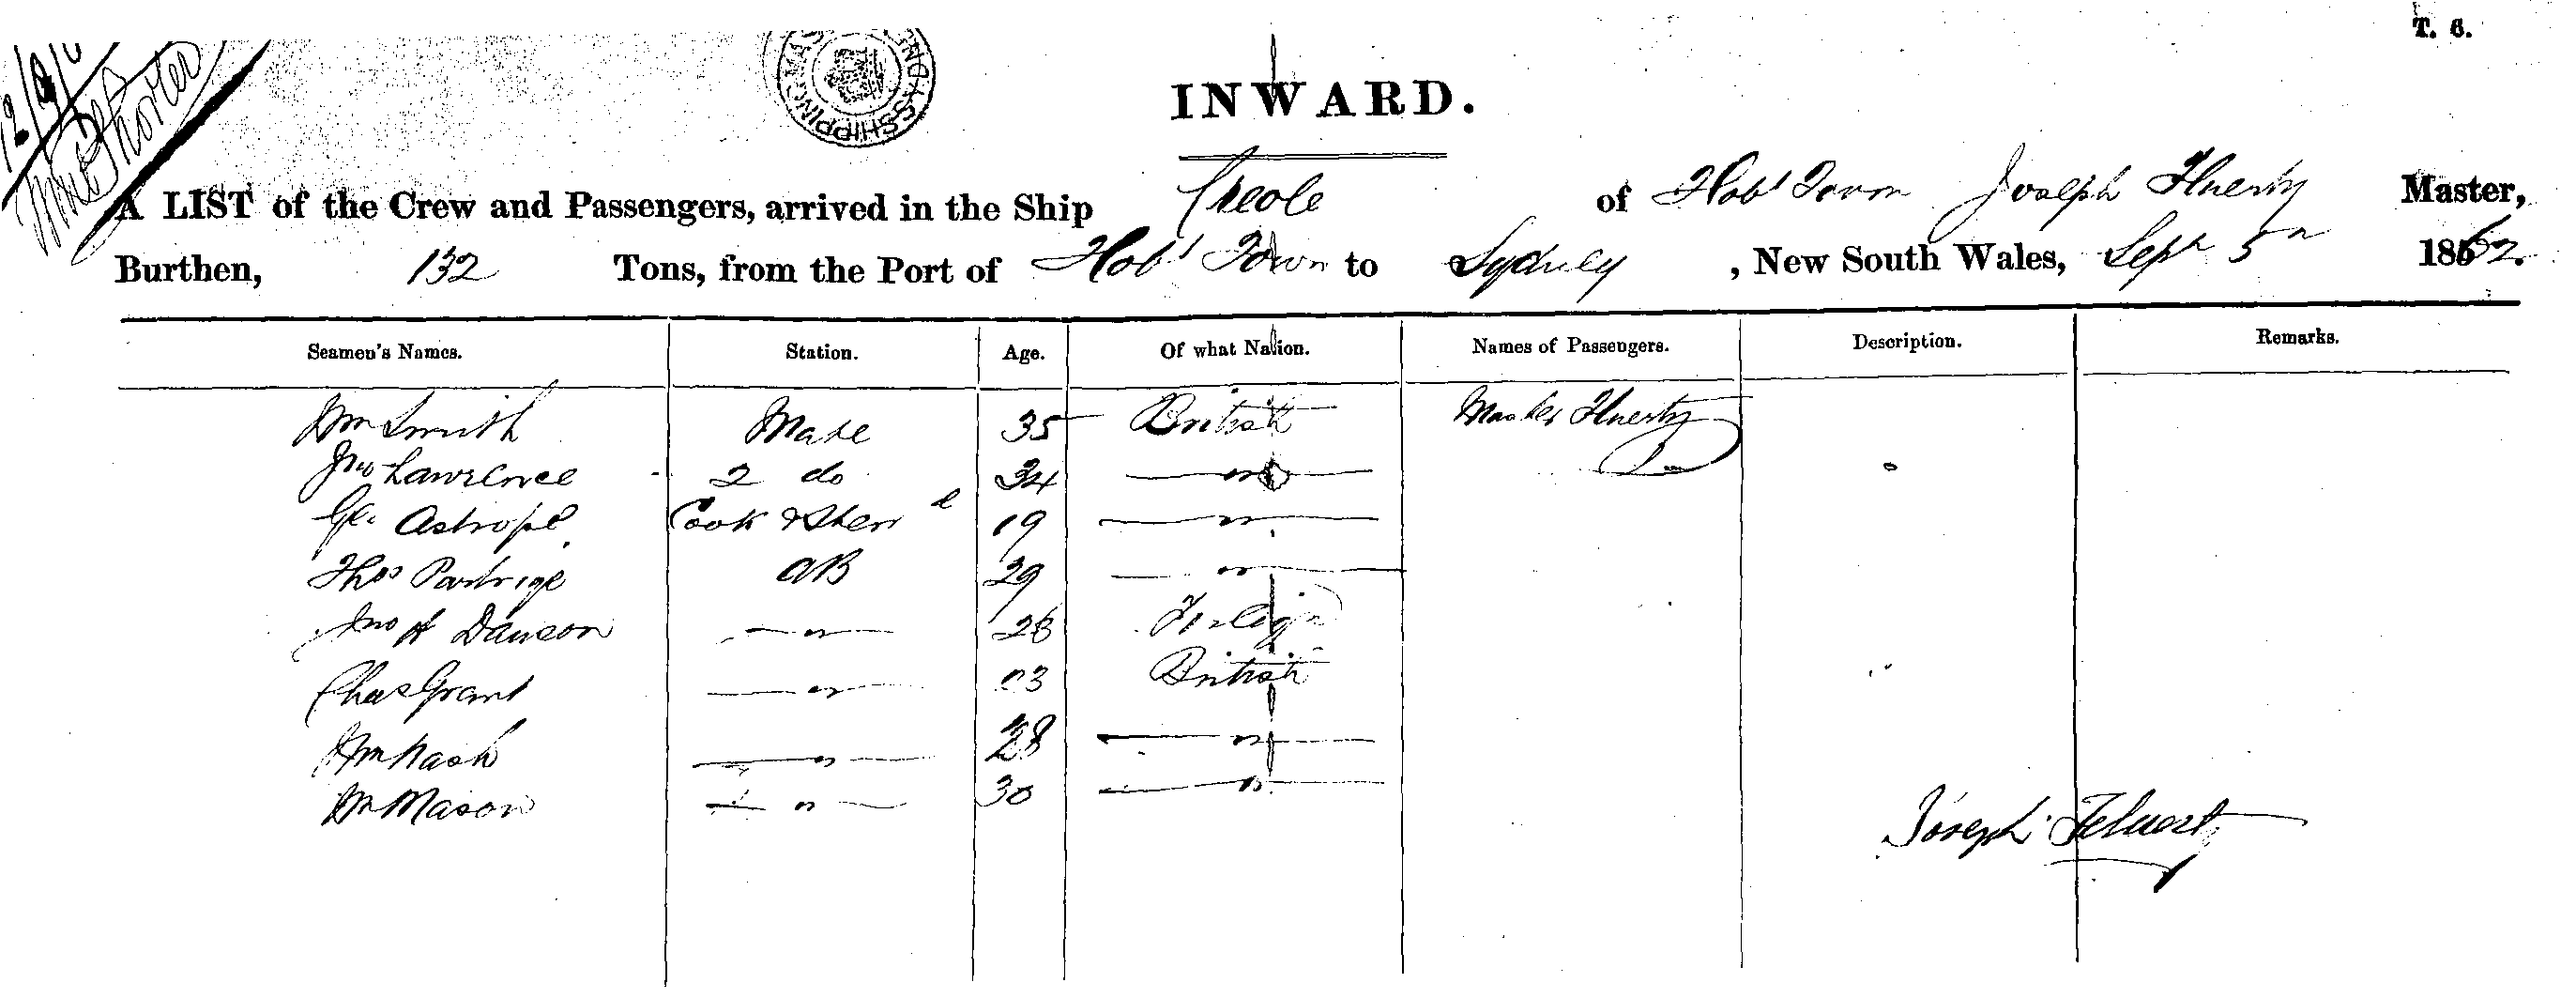 T. 6.
INWARD.
A LIST of the Crew and Passengers, arrived in the Ship Creole of Hobt Town Joseph Fluerty Master,
Burthen, 132 Tons, from the Port of Hobt Town to Sydney, New South Wales, Sept 5th 1862.
Seamen's Names. Station. Age. Of what Nation. Names of Passengers. Description. Remarks.
Wm Smith Mate 35 British Master Fluerty
Jno Lawrence 2 do 34 — " —
Geo Astrope Cook & Stew d 19 — " —
Thos Partrige AB 29 — " —
Jno A Dawson — " — 28 Foreign
Chas Grant — " — 23 British
Wm Nash — " — 28 — " —
Wm Mason — " — 30 — " —
Joseph